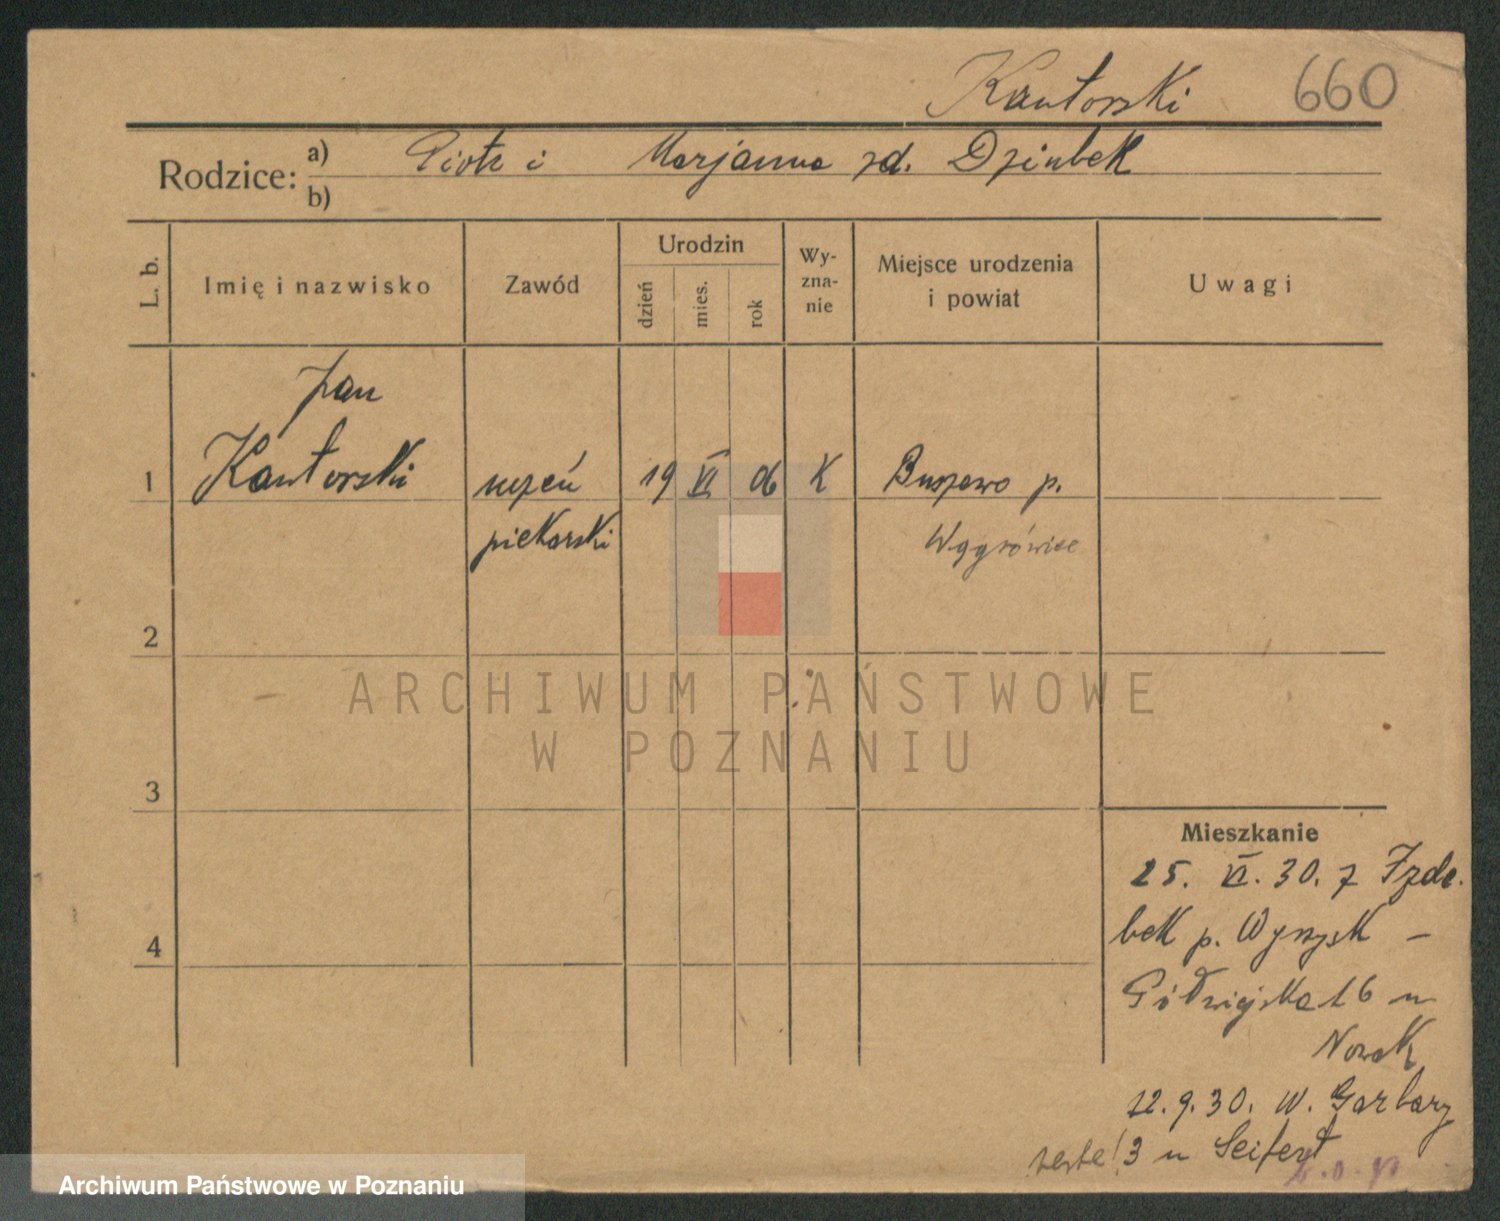 Kantorski 660
Rodzice: a) Piotr i Marjanna zd. Dziubek
b)
L. b. Imię i nazwisko Zawód Urodzin dzień mies. rok Wy-zna-nie Miejsce urodzenia i powiat Uwagi
Jan
1 Kantorski uczeń 19 VI 06 K Buszewo p.
piekarski Wągrówiec
2
ARCHIWUM PAŃSTWOWE
W POZNANIU
3
Mieszkanie
25. VI. 30. z Izde-
bek p. Wyrzysk –
4
Półwiejska 16 u
Nowak
12.9.30. W. Garbary
3 u Seifert
Archiwum Państwowe w Poznaniu